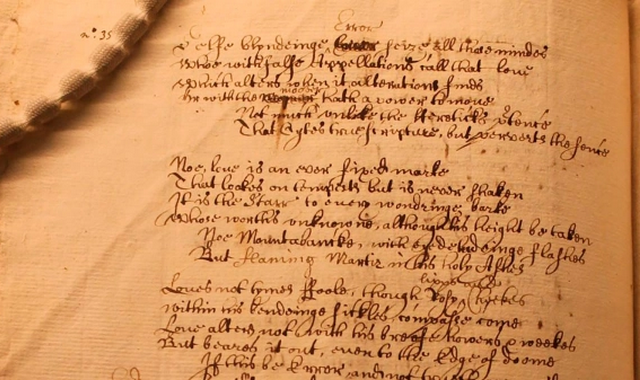 Error
selfe blyndeinge Error seize all those mindes
Who with false Appellations call that love
Which alters when it alteration finds
moover
or with the hath a power to move
Not much unlike the Hereticks pretence
That Cytes true scripture, but perverts the sence
Noe, love is an ever fixed marke
That lookes on tempests but is never shaken
It is the starr to every wondringe barke
Whose worths unknowne, although his height be taken
Noe Mountabancke, with flashes
But flameing Martir in his holy Ashes
lipps and
Loves not tymes Foole, though Rosy Cheekes
within his bendeinge sickles compasse come
Love alters not with his breefe howers & weekes
But beares it out, even to the Edge of doome
If this be Error and not
n.º 35